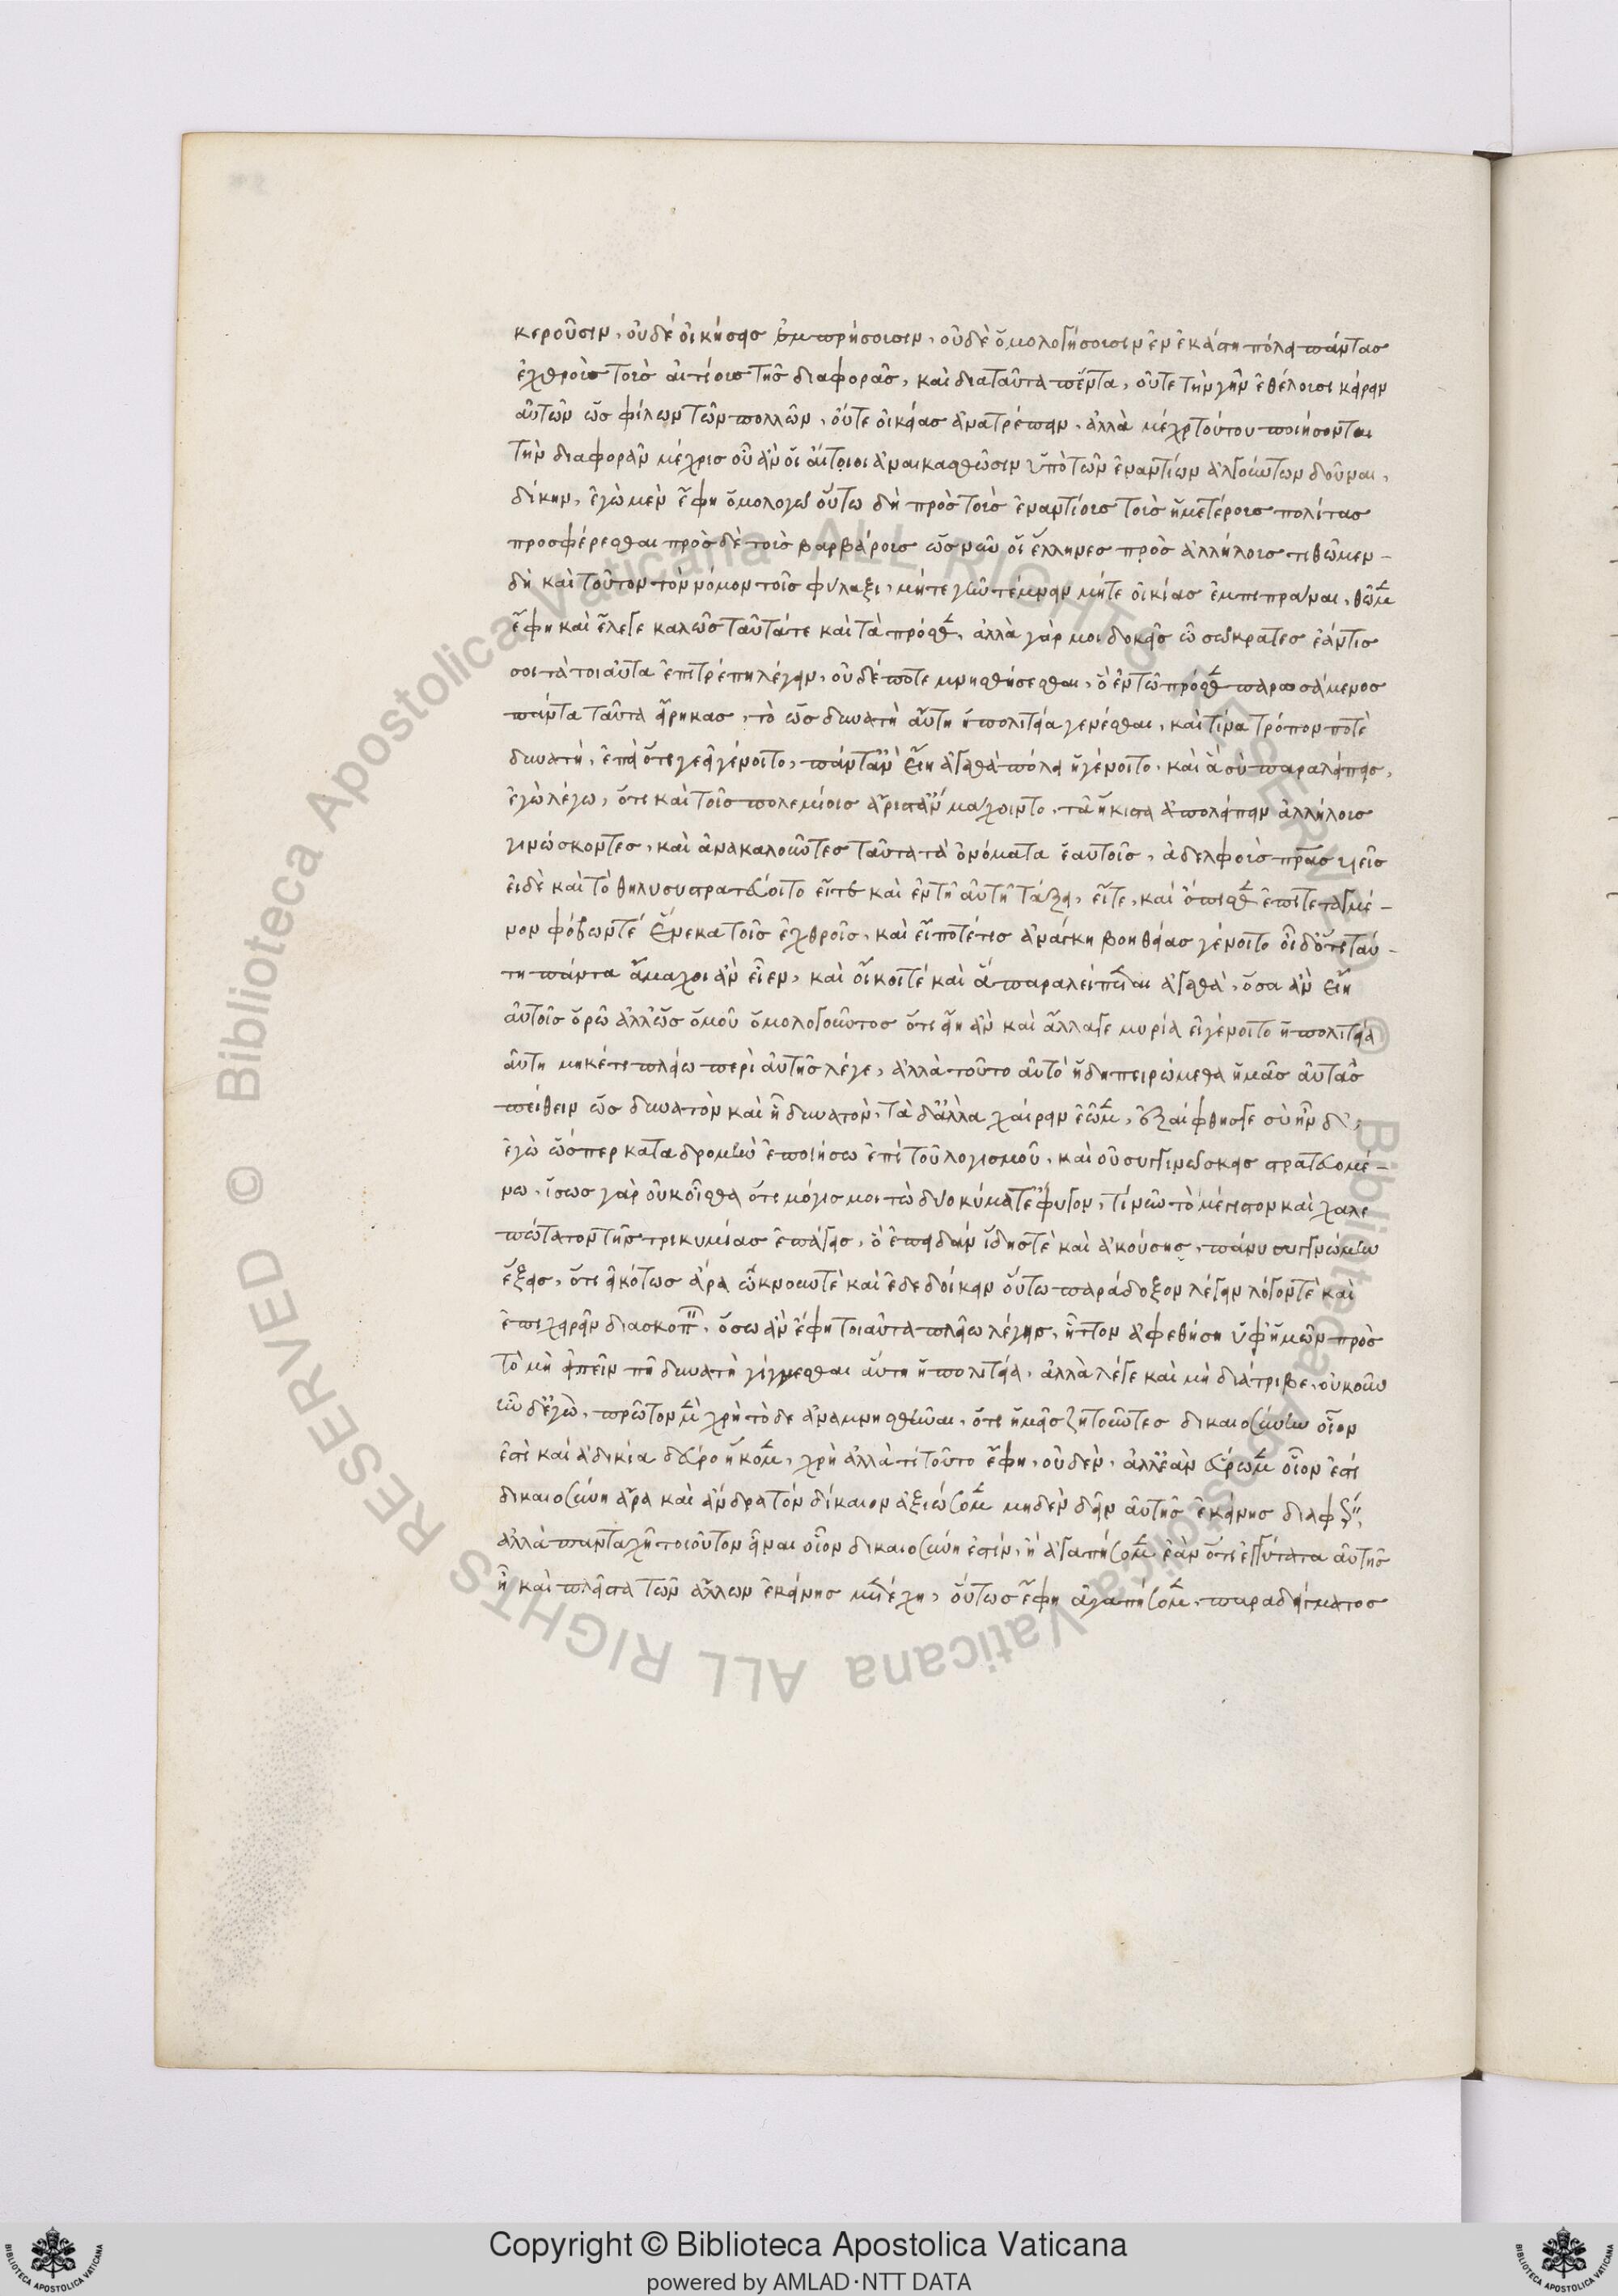 κεροῦσιν, οὐδέ οἰκήσεις ἐμπρήσουσιν, οὐδὲ ὁμολογήσουσιν ἐν ἑκάστη πόλει πάντας
ἐχθροὺς τοὺς αἰτίους τῆς διαφορᾶς, καὶ διαταῦτα πάντα, οὔτε τὴν γῆν ἐθέλουσι κείρειν
αὐτῶν ὡς φίλων τῶν πολλῶν, οὔτε οἰκείας ἀνατρέπειν, ἀλλὰ μέχρι τούτου ποιήσονται
τὴν διαφορὰν μέχρις οὗ ἂν οἱ αἴτιοι ἀναικασθῶσιν ὑπὸ τῶν ἐναντίων ἀλγούντων δοῦναι,
δίκην, ἐγὼ μὲν ἔφη ὁμολογῶ οὕτω δὴ πρὸς τοὺς ἐναντίους τοὺς ἡμετέρους πολίτας
προσφέρεσθαι πρὸς δὲ τοὺς βαρβάρους ὡς νῦν οἱ ἕλληνες πρὸς ἀλλήλους τιθῶμεν -
δὴ καὶ τοῦτον τὸν νόμον τοῖς φύλαξι, μήτε γῆν τέμνειν μήτε οἰκίας ἐμπιπράναι, θῶμεν
ἔφη καὶ ἔλεγε καλῶς ταῦτά τε καὶ τὰ πρόσθεν, ἀλλὰ γάρ μοι δοκεῖς ὦ σώκρατες ἐάν τις
σοι τὰ τοιαῦτα ἐπιτρέπη λέγειν, οὐδέποτε μνησθήσεσθαι, ὃ ἐν τῶ πρόσθεν παρωσάμενος
πάντα ταῦτα εἴρηκας, τὸ ὡς δυνατὴ αὕτη ἡ πολιτεία γενέσθαι, καὶ τίνα τρόπον ποτὲ
δυνατή, ἐπεὶ ὅτι γε εἰ γένοιτο, πάντ' ἂν εἴη ἀγαθὰ πόλει ἡ γένοιτο, καὶ ἃ σὺ παραλείπεις,
ἐγὼ λέγω, ὅτι καὶ τοῖς πολεμίοις ἄριστ' ἂν μάχοιντο, τῶ ἥκιστα ἀπολείπειν ἀλλήλους
γινώσκοντες, καὶ ἀνακαλοῦντες ταῦτα τὰ ὀνόματα ἑαυτοῖς, ἀδελφοὺς πατέρας υἱεῖς
εἰ δὲ καὶ τὸ θῆλυ συστρατεύοιτο εἴτε καὶ ἐν τῆ αὐτῆ τάξει, εἴτε, καὶ ὄπισθεν ἐπιτεταγμέ -
νον φόβων τέ ἕνεκα τοῖς ἐχθροῖς, καὶ εἴ ποτέ τις ἀνάγκη βοηθείας γένοιτο οἶδ' ὅτι ταύ -
τη πάντα ἄμαχοι ἂν εἶεν, καὶ οἴκοι τέ καὶ ἃ παραλείπεται ἀγαθά, ὅσα ἂν εἴη
αὐτοῖς ὁρῶ ἀλλ' ὡς ὁμοῦ ὁμολογοῦντος ὅτι εἴη ἂν καὶ ἄλλα γε μυρία εἰ γένοιτο ἡ πολιτεία
αὕτη μηκέτι πλείω περὶ αὐτῆς λέγε, ἀλλὰ τοῦτο αὐτὸ ἤδη πειρώμεθα ἡμᾶς αὐτοὺς
πείθειν ὡς δυνατὸν καὶ ἧ δυνατὸν, τὰ δ' ἄλλα χαίρειν ἐῶμεν, ἐξαίφθης γε σὺ ἦν δ',
ἐγὼ ὥσπερ καταδρομὴν ἐποιήσω ἐπὶ τοῦ λογισμοῦ, καὶ οὐ συγγινώσκεις στρατευομέ -
νω, ἴσως γὰρ οὐκ οἶσθα ὅτι μόγις μοι τὼ δύο κύματε ἐφυγον, τί νῦν τὸ μέγιστον καὶ χαλε
πώτατον τῆς τρικυμίας ἐπάγεις, ὃ ἐπειδὰν ἴδης τὲ καὶ ἀκούσης, πάνυ συγγνώμην
ἕξεις, ὅτι εἰκότως ἄρα ὤκνουν τὲ καὶ ἐδεδοίκειν οὕτω παράδοξον λέγειν λόγον τὲ καὶ
ἐπιχειρεῖν διασκοπεῖν, ὅσω ἂν ἔφη τοιαῦτα πλείω λέγης, ἧττον ἀφεθήση ὑφ' ἡμῶν πρὸς
τὸ μὴ εἰπεῖν πῆ δυνατὴ γίγνεσθαι αὕτη ἡ πολιτεία, ἀλλὰ λέγε καὶ μὴ διάτριβε, οὐκοῦν
ἦν δ' ἐγὼ, πρῶτον μὲν χρὴ τὸ δε ἀναμνησθῆναι, ὅτι ἡμεῖς ζητοῦντες δικαιοσύνην οἷον
ἐστὶ καὶ ἀδικία δεῦρο ἥκομεν, χρὴ ἀλλὰ τί τοῦτο ἔφη, οὐδὲν, ἀλλ' ἐὰν εὕρωμεν οἷον ἐστὶ
δικαιοσύνη ἆρα καὶ ἄνδρα τὸν δίκαιον ἀξιώσομεν μηδὲν δεῖν αὐτῆς ἐκείνης διαφέρειν,
ἀλλὰ πανταχῆ τοιοῦτον εἶναι οἷον δικαιοσύνη ἐστίν, ἢ ἀγαπήσομεν ἐὰν ὅτι ἐγγύτατα αὐτῆς
ἦ καὶ πλεῖστα τῶν ἄλλων ἐκείνης μετέχη, οὕτως ἔφη ἀγαπήσομεν, παραδείγματος
© Biblioteca Apostolica Vaticana ALL RIGHTS RESERVED
Copyright © Biblioteca Apostolica Vaticana
powered by AMLAD·NTT DATA